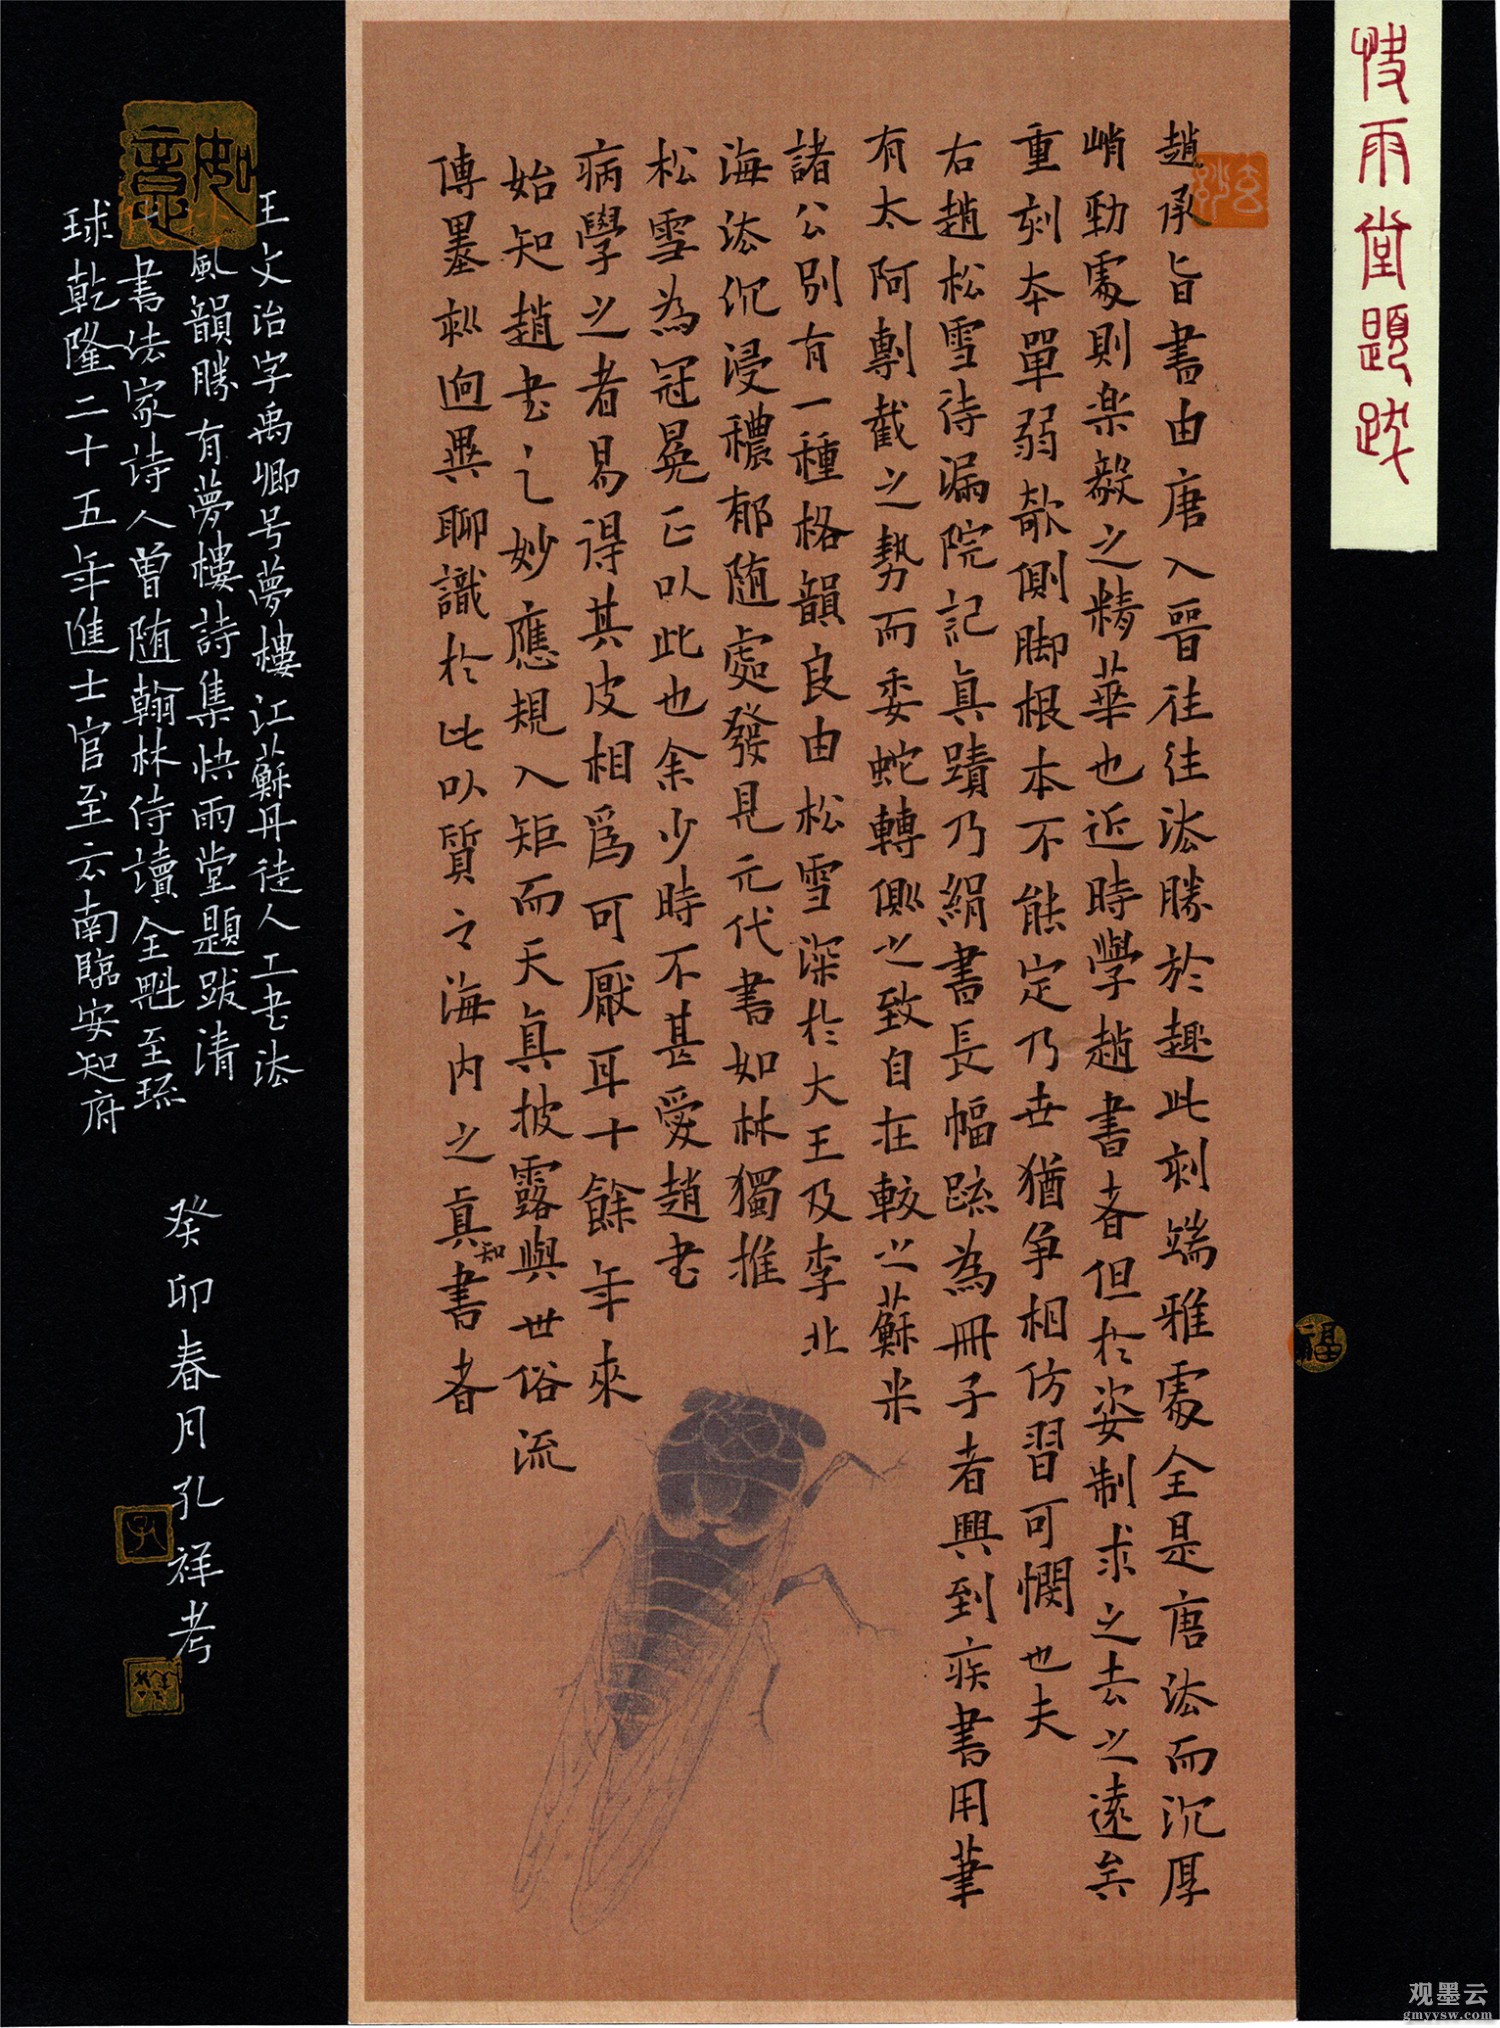 快雨堂題跋
趙承旨書由唐入晉往往法勝於趣此刻端雅處全是唐法而沉厚
峭勁處則樂毅之精華也近時學趙書者但於姿制求之去之遠矣
重刻本單弱欹側脚根本不能定乃世猶争相仿習可憫也夫
右趙松雪待漏院記真蹟乃絹書長幅疏為冊子者興到疾書用筆
有太阿剸截之勢而委蛇轉側之致自在較之蘇米
諸公别有一種格韻良由松雪深於大王及李北
海法沉浸穠郁随處發見元代書如林獨推
松雪為冠冕正以此也余少時不甚愛趙書
病學之者易得其皮相為可厭耳十餘年來
始知趙書之妙應規入矩而天真披露與世俗流
傳墨刻迥異聊識於此以質之海内之真知書者
王文治字禹卿号夢樓江蘇丹徒人工书法
風韻勝有夢樓詩集快雨堂題跋清
書法家詩人曾随翰林侍讀全魁至琉
球乾隆二十五年進士官至云南臨安知府
癸卯春月孔祥考
福
观墨云
gmyysw.com